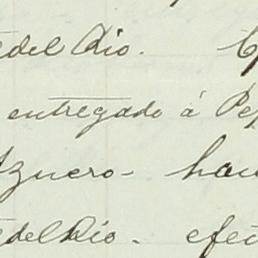 del Rio.
entregado á Pe
Azuero- hau
del Rio. efec